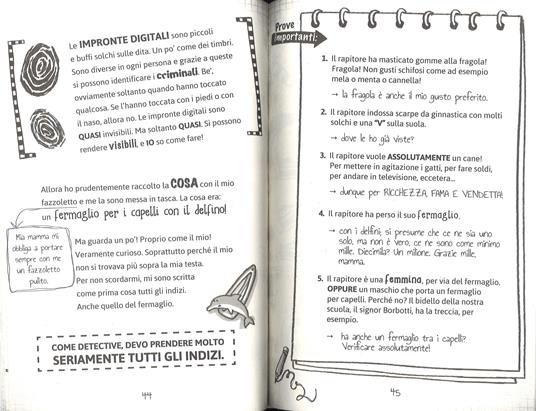 Le IMPRONTE DIGITALI sono piccoli
e buffi solchi sulle dita. Un po' come dei timbri.
Sono diverse in ogni persona e grazie a queste
si possono identificare i criminali. Be',
ovviamente soltanto quando hanno toccato
qualcosa. Se l'hanno toccata con i piedi o con
il naso, allora no. Le impronte digitali sono
QUASI invisibili. Ma soltanto QUASI. Si possono
rendere visibili, e IO so come fare!
Allora ho prudentemente raccolto la COSA con il mio
fazzoletto e me la sono messa in tasca. La cosa era:
un fermaglio per i capelli con il delfino!
Mia mamma mi
obbliga a portare
sempre con me
un fazzoletto
pulito.
Ma guarda un po'! Proprio come il mio!
Veramente curioso. Soprattutto perché il mio
non si trovava più sopra la mia testa.
Per non scordarmi, mi sono scritta
come prima cosa tutti gli indizi.
Anche quello del fermaglio.
COME DETECTIVE, DEVO PRENDERE MOLTO
SERIAMENTE TUTTI GLI INDIZI.
44
Prove
importanti:
1. Il rapitore ha masticato gomme alla fragola!
Fragola! Non gusti schifosi come ad esempio
mela o menta o cannella!
→ la fragola è anche il mio gusto preferito.
2. Il rapitore indossa scarpe da ginnastica con molti
solchi e una "V" sulla suola.
→ dove le ho già viste?
3. Il rapitore vuole ASSOLUTAMENTE un cane!
Per mettere in agitazione i gatti, per fare soldi,
per andare in televisione, eccetera...
→ dunque per RICCHEZZA, FAMA E VENDETTA!
4. Il rapitore ha perso il suo fermaglio.
→ con i delfini, si presume che ce ne sia uno
solo, ma non è vero, ce ne sono come minimo
mille. Diecimila? Un milione. Grazie mille,
mamma.
5. Il rapitore è una femmina, per via del fermaglio,
OPPURE un maschio che porta un fermaglio
per capelli. Perché no? Il bidello della nostra
scuola, il signor Borbotti, ha la treccia, per
esempio.
→ ha anche un fermaglio tra i capelli?
Verificare assolutamente!
45